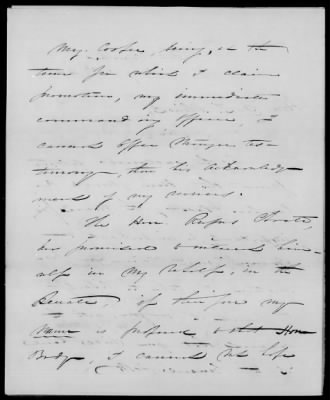 Maj. Cooper, being, in the
time for which I claim
promotion, my immediate
commanding officer, I
cannot offer stronger tes-
timony, than his acknowledg-
ment of my services.
The Hon Rufus Choate,
has promised to interest him-
self in my behalf, in the
Senate, if therefore my
name is proposed, to that Hon
Body, I cannot but hope